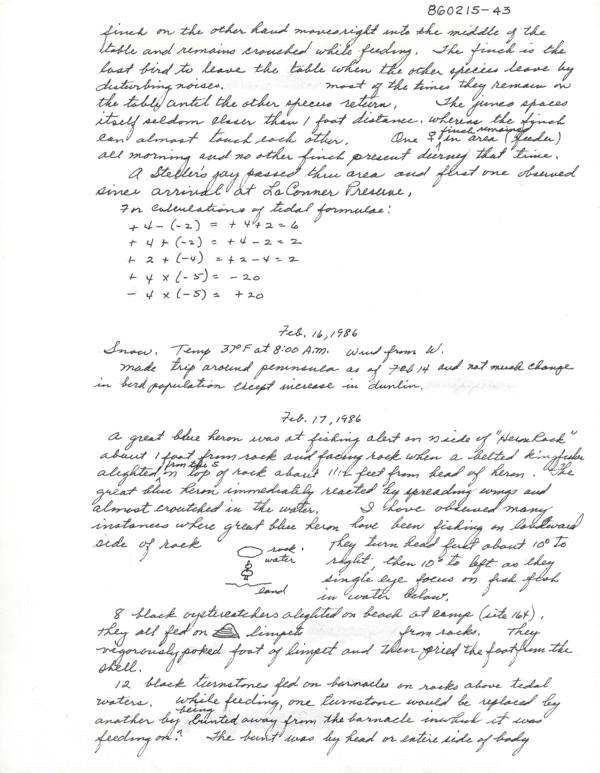 860215-43
finch on the other hand moves right into the middle of the
table and remains crouched while feeding. The finch is the
last bird to leave the table when the other species leave by
disturbing noises. most of the times they remain on
the table until the other species return. The junco spaces
itself seldom closer than 1 foot distance, whereas the finch
can almost touch each other. One ♀ finch remained in area (feeder)
all morning and no other finch present during that time.
A Steller's jay passed thru area and first one observed
since arrival at LaConner Preserve.
For calculations of tidal formulae:
+ 4 - (-2) = + 4 + 2 = 6
+ 4 + (-2) = + 4 - 2 = 2
+ 2 + (-4) = + 2 - 4 = 2
+ 4 x (-5) = - 20
- 4 x (-5) = + 20
Feb. 16, 1986
Snow. Temp 37°F at 8:00 A.M. Wind from W.
Made trip around peninsula as of Feb 14 and not much change
in bird population except increase in dunlin.
Feb. 17, 1986
A great blue heron was at fishing alert on N side of "Heron Rock"
about 1 foot from rock and facing rock when a belted kingfisher
alighted from the S on top of rock about 1 1/2 feet from head of heron. The
great blue heron immediately reacted by spreading wings and
almost crouched in the water. I have observed many
instances where great blue heron have been fishing on landward
side of rock
rock.
water
land
They turn head first about 10° to
right, then 10° to left as they
single eye focus on fish
in water below.
8 black oystercatchers alighted on beach at camp (site 164).
They all fed on limpets from rocks. They
vigorously poked foot of limpet and then pried the foot from the
shell.
12 black turnstones fed on barnacles on rocks above tidal
waters. While feeding, one turnstone would be replaced by
another by being bunted away from the barnacle in which it was
feeding on. The bunt was by head or entire side of body